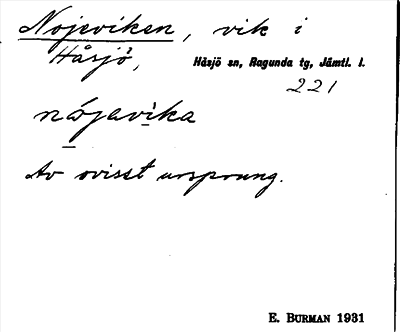 Nojeviken, vik i
Håsjö,
Håsjö sn, Ragunda tg, Jämtl. l.
221
nåjavika
Av ovisst ursprung.
E. BURMAN 1931